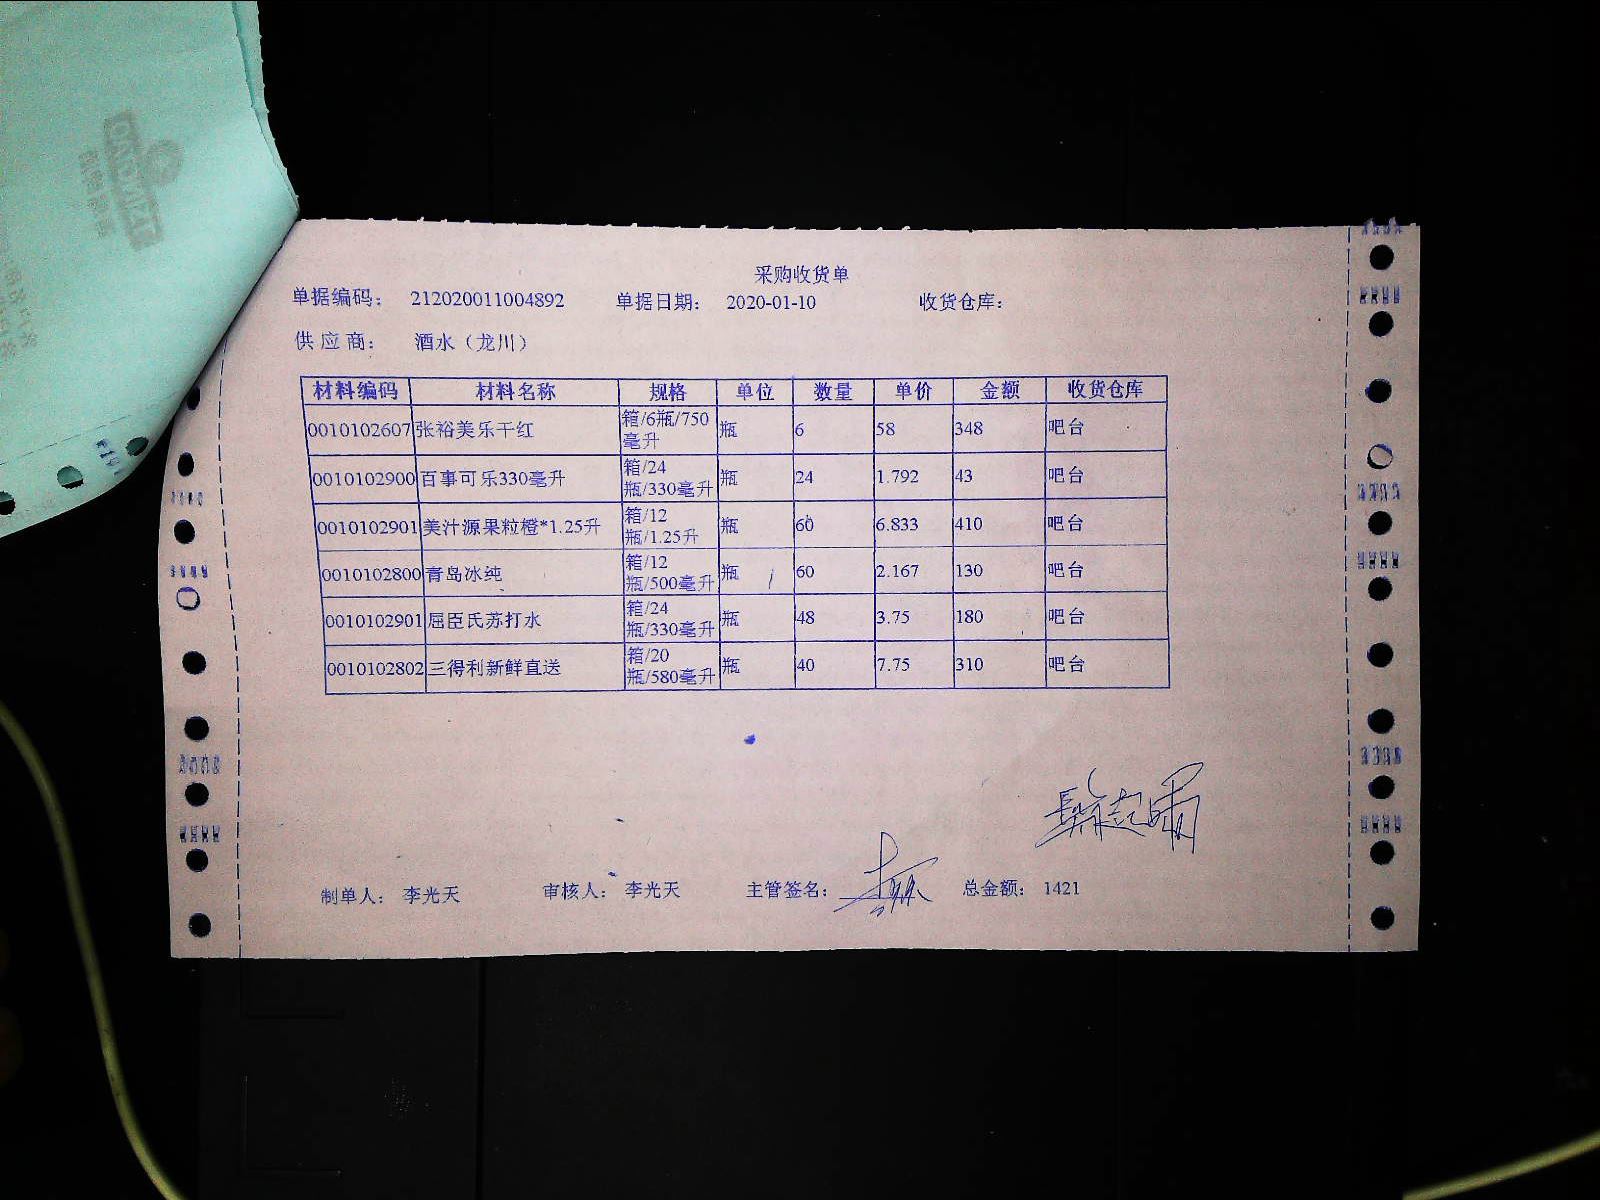 采购收货单
单据编码： 212020011004892 单据日期： 2020-01-10 收货仓库：
供应商： 酒水（龙川）
材料编码 材料名称 规格 单位 数量 单价 金额 收货仓库
0010102607 张裕美乐干红 箱/6瓶/750毫升 瓶 6 58 348 吧台
0010102900 百事可乐330毫升 箱/24瓶/330毫升 瓶 24 1.792 43 吧台
0010102901 美汁源果粒橙*1.25升 箱/12瓶/1.25升 瓶 60 6.833 410 吧台
0010102800 青岛冰纯 箱/12瓶/500毫升 瓶 60 2.167 130 吧台
0010102901 屈臣氏苏打水 箱/24瓶/330毫升 瓶 48 3.75 180 吧台
0010102802 三得利新鲜直送 箱/20瓶/580毫升 瓶 40 7.75 310 吧台
制单人： 李光天 审核人： 李光天 主管签名： 总金额： 1421